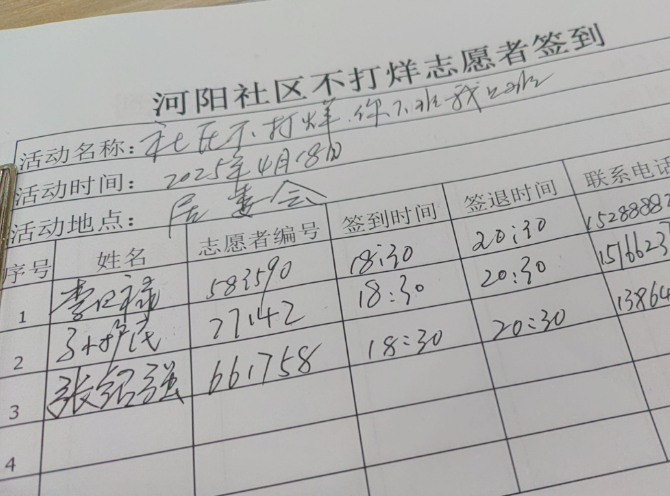 河阳社区不打烊志愿者签到
活动名称：社区不打烊.你下班我上班
活动时间：2025年4月18日
活动地点：居委会
序号 姓名 志愿者编号 签到时间 签退时间 联系电话
1 583590 18:30 20:30 15288882
2 77142 18:30 20:30 1516623
3 张绍强 661758 18:30 20:30 13864
4